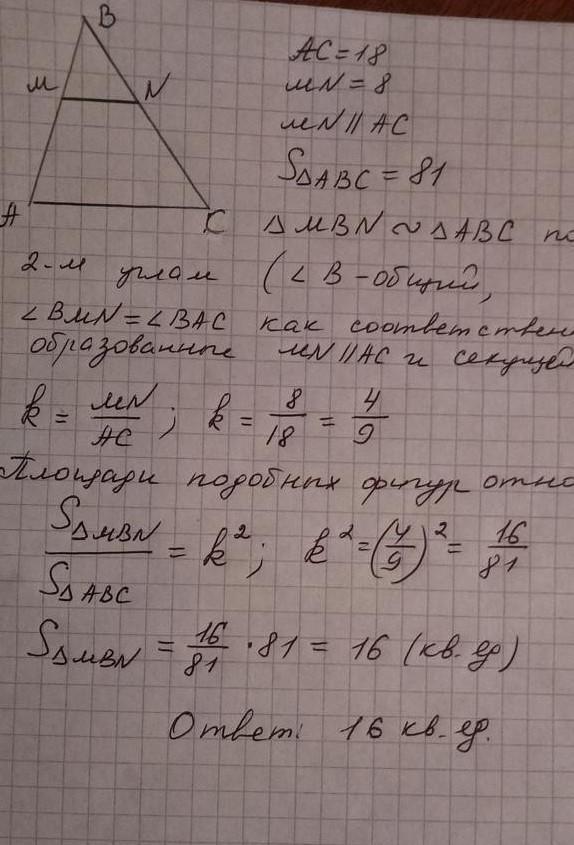 B
M N
A C
AC = 18
MN = 8
MN || AC
S△ABC = 81
△MBN ∾ △ABC по
2-м углам (∠B - общий,
∠BMN = ∠BAC как соответствен
образованные MN || AC и секущей
k = MN/AC; k = 8/18 = 4/9
Площади подобных фигур отно
S△MBN/S△ABC = k²; k² = (4/9)² = 16/81
S△MBN = 16/81 · 81 = 16 (кв. ед)
Ответ: 16 кв. ед.